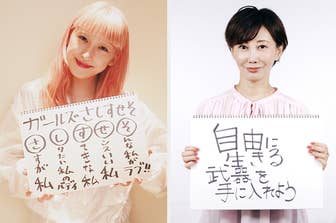 ガールズさしすせそ
さすが私
しりたい私のボディ
すてきな私
センスいい私
そんな私がラブ!!
自由に
生きる
武器を
手に入れよう